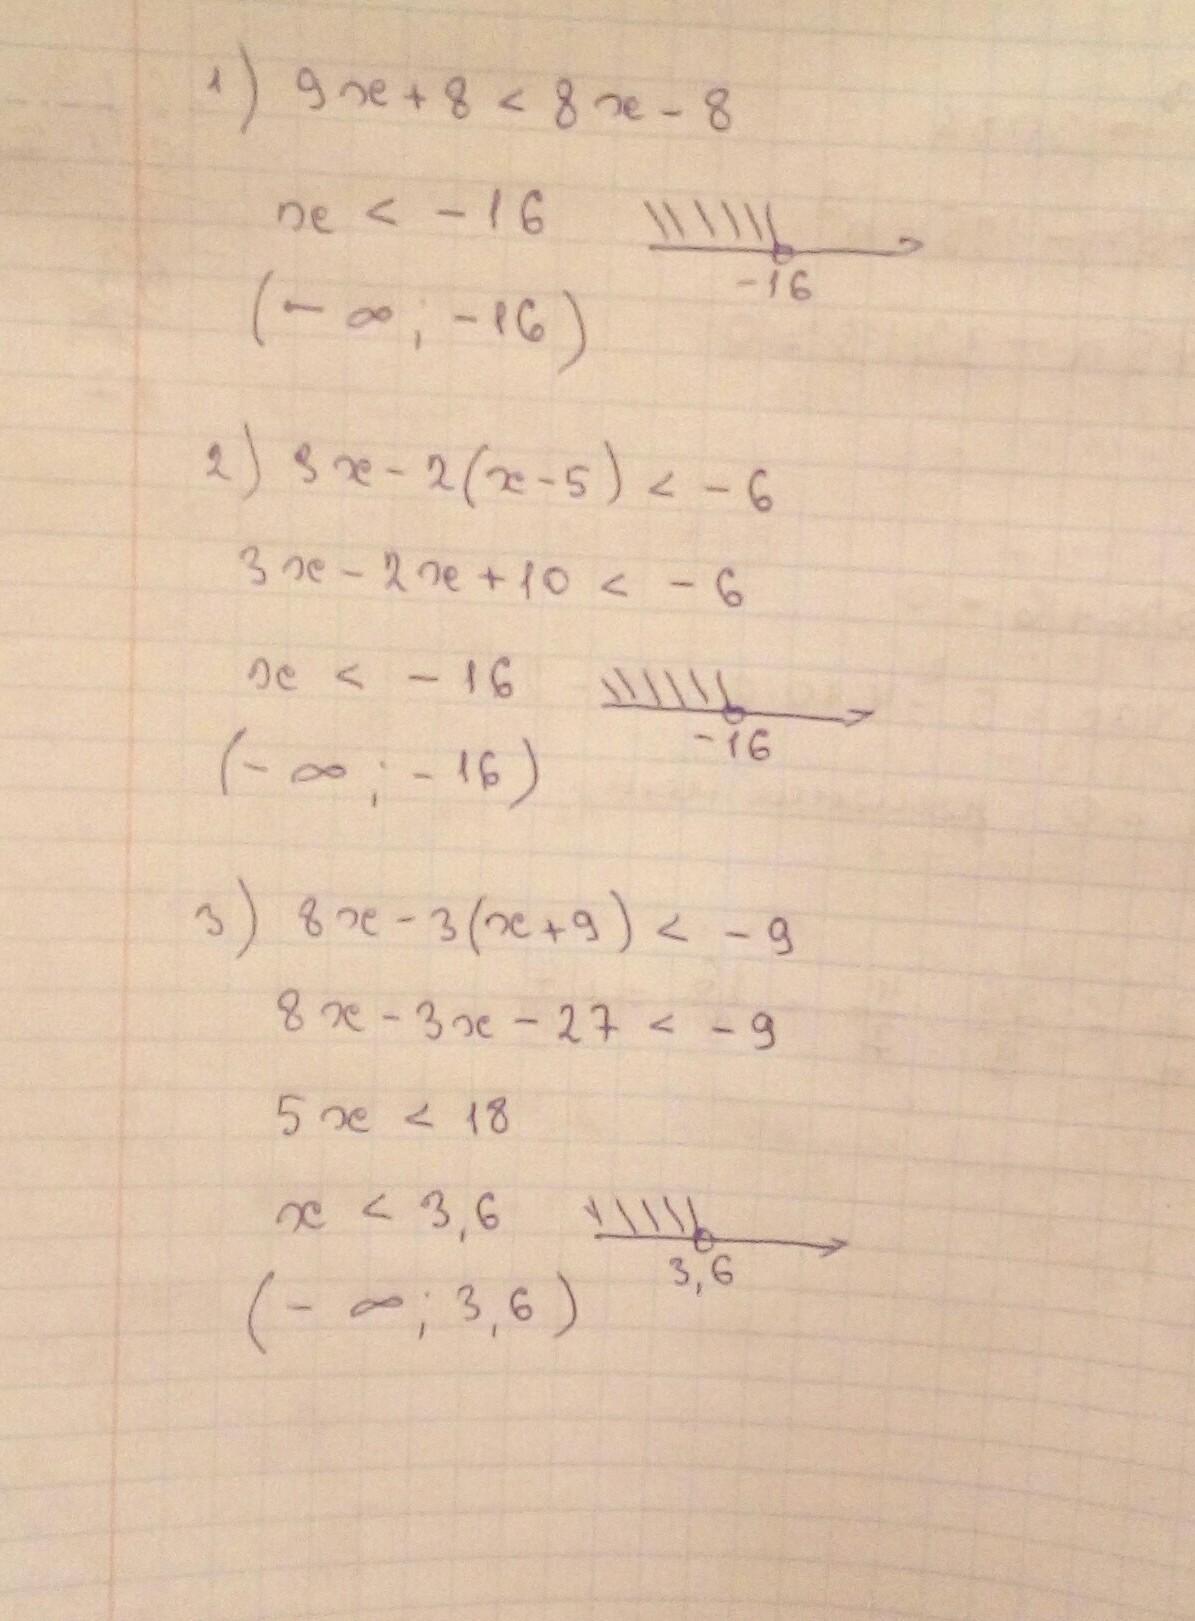 1) 9x + 8 < 8x - 8
x < -16
-16
(-∞; -16)
2) 3x - 2(x - 5) < -6
3x - 2x + 10 < -6
x < -16
-16
(-∞; -16)
3) 8x - 3(x + 9) < -9
8x - 3x - 27 < -9
5x < 18
x < 3,6
3,6
(-∞; 3,6)